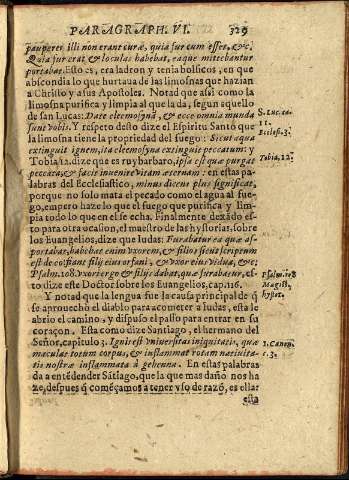 PARAGRAPH. VI. 329
pauperes illi non erant curæ, quia fur cum esset, &c.
Quia fur erat & loculas habebat, eaque mittebantur
portabat. Esto es, era ladron y tenia bolsicos, en que
abscondia lo que hurtaua de las limosnas que hazian
a Christo y a sus Apostoles. Notad que assi como la
limosna purifica y limpia al que la da, segun aquello
de san Lucas: Date eleemosynã, & ecce omnia munda
sunt vobis. Y respeto desto dize el Espiritu Santo que
la limosna tiene la propriedad del fuego: Sicut aqua
extinguit ignem, ita eleemosyna extinguit peccatum: y
Tobia, 12. dize que es ruybarbaro, ipsa est quæ purgat
peccata, & facit inuenire vitam æternam: en estas pa-
labras del Ecclesiastico, minus dicens plus significat,
porque no solo mata el pecado como el agua al fue-
go, empero haze lo que el fuego que purifica y lim-
pia todo lo que en el se echa. Finalmente dexãdo es-
to para otra ocasion, el maestro de las hystorias, sobre
los Euangelios, dize que Iudas: Furabatur ea quæ as-
portabat, habebat enim vxorem, & filios sicut scriptum
est de eo: fiant filij eius orfani, & vxor eius vidua, &c;
Psalm. 108. Vxori ergo & filijs dabat, quæ furabatur, es-
to dize este Doctor sobre los Euangelios, cap. 116.
Y notad que la lengua fue la causa principal de q̃
se aprouechò el diablo para cometer a Iudas, esta le
abrio el camino, y dispuso el passo para entrar en su
coraçon. Esta como dize Santiago, el hermano del
Señor, capitulo 3. Ignis est vniuersitas iniquitatis, quæ
maculat totum corpus, & inflammat rotam natiuita-
tis nostræ inflammata à gehenna. En estas palabras
da a entèdender Sãtiago, que la que mas daño nos ha
ze, despues q̃ comẽçamos a tener vso de razõ, es ella:
esta
S. Luc. ca.
11.
Eclesi. 3.
Tobia. 12.
Psalm. 108
Magist.
hystor.
1. Canon.
c. 3.